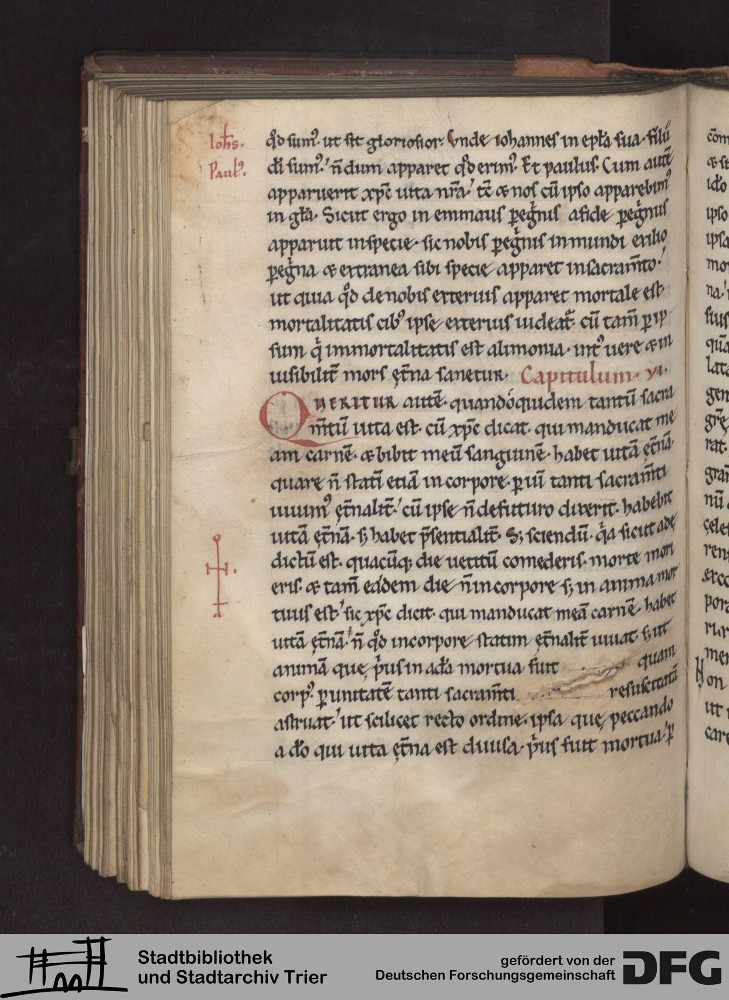 Ioħs.
Paulꝰ.
qd̄ sumꝰ. ut sit gloriosior. Vnde iohannes in epl̄a sua. filii
di sumꝰ. n̄dum apparet qd̄ erimꝰ. Et paulus. Cum autē
apparuerit xp̄c uita nr̄a. tc̄ & nos cū ipso apparebimꝰ
in gl̄a. Sicut ergo in emmaus peg̍nis a fide peg̍nus
apparuit in specie. sic nobis peg̍nis in mundi exilio
peg̍na & extranea sibi specie apparet in sacram̄to.
ut quia qd̄ de nobis exterius apparet mortale est.
mortalitatis cibꝰ ipse exterius uideat̄. cū tam̄ p ip
sum q̍ immortalitatis est alimonia. intꝰ uere & in
uisibilit̄ mors et̄na sanetur. Capitulum. vi.
QUERITUR autē. quandóquidem tantū sacra
m̄tū uita est. cū xp̄c dicat. qui manducat me
am carnē. & bibit meū sanguinē. habet uitā et̄nā.
quare n̄ statī etiā in corpore. p uī tanti sacram̄ti
uiuimꝰ et̄nalit̄. cū ipse n̄ de futuro dixerit. habebit
uitā et̄nā. s; habet p̄sentialit̄. S; sciendū. q̍a sicut ade
dictū est. quacūq; die uetitū comederis. morte mori
eris. & tam̄ eádem die n̄ in corpore s; in anima mor
tuus est. sic xp̄c dicit. qui manducat meā carnē. habet
uitā et̄nā. n̄ qd̄ in corpore statim et̄nalit̄ uiuat. s; ut
animā que p̍us in adā mortua fuit quam
corpꝰ. p unitatē tanti sacram̄ti resuscitatā
astruat. ut scilicet recto ordine. ipsa que peccando
a do qui uita et̄na est diuisa. p̍us fuit mortua. p
Stadtbibliothek
und Stadtarchiv Trier
gefördert von der
Deutschen Forschungsgemeinschaft
DFG